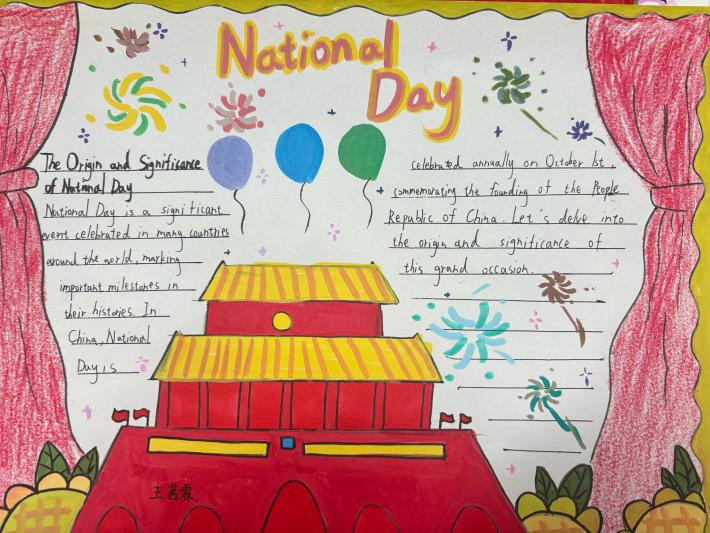 National
Day
The Origin and Significance
of National Day
National Day is a significant
event celebrated in many countries
around the world, marking
important milestones in
their histories. In
China, National
Day is
celebrated annually on October 1st,
commemorating the founding of the People
Republic of China. Let's delve into
the origin and significance of
this grand occasion.
王茜霖